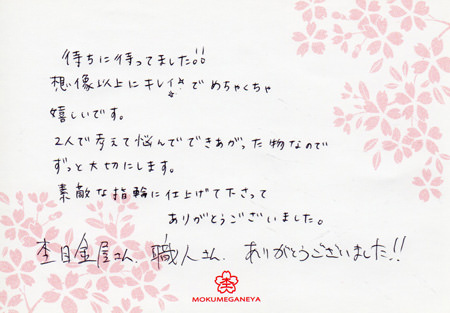 待ちに待ってました!!
想像以上にキレイでめちゃくちゃ
嬉しいです。
2人で考えて悩んでできあがった物なので
ずっと大切にします。
素敵な指輪に仕上げて下さって
ありがとうございました。
杢目金屋さん、職人さん、ありがとうございました!!
杢
MOKUMEGANEYA